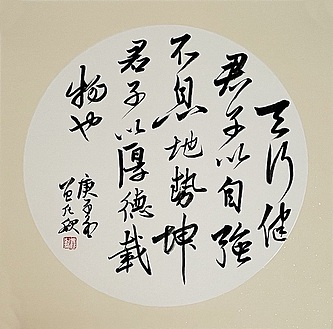 天行健
君子以自強
不息地勢坤
君子以厚德載
物也
庚子